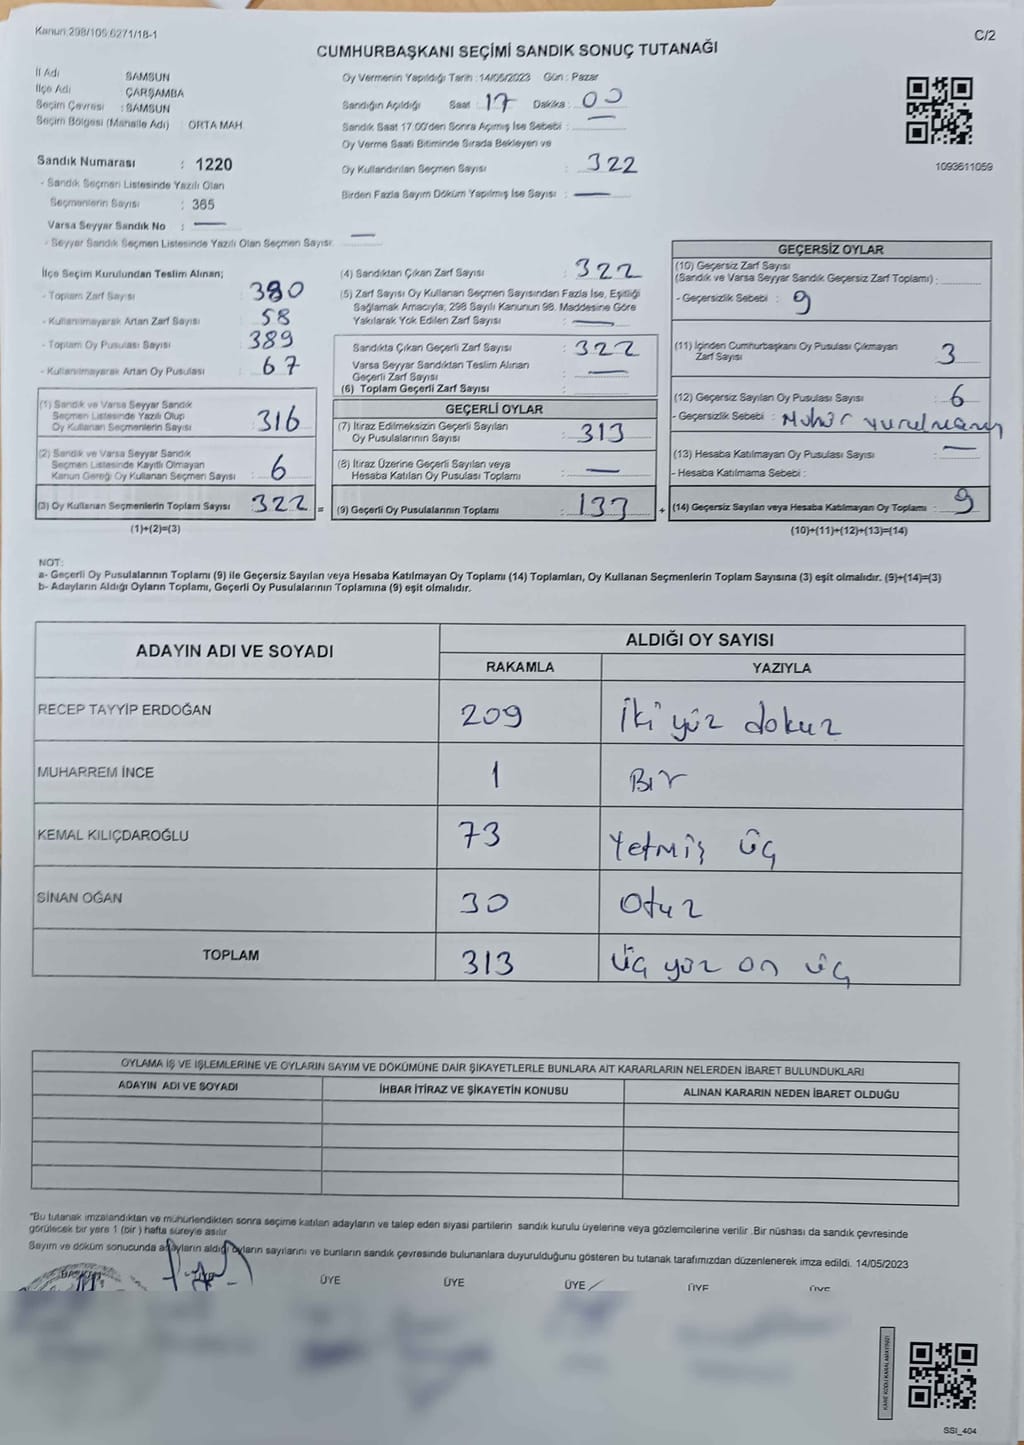 Kanun:298/105;6271/18-1
C/2
CUMHURBAŞKANI SEÇİMİ SANDIK SONUÇ TUTANAĞI
İl Adı SAMSUN
İlçe Adı ÇARŞAMBA
Seçim Çevresi : SAMSUN
Seçim Bölgesi (Mahalle Adı) : ORTA MAH.
Sandık Numarası : 1220
- Sandık Seçmen Listesinde Yazılı Olan
Seçmenlerin Sayısı : 365
Varsa Seyyar Sandık No : —
- Seyyar Sandık Seçmen Listesinde Yazılı Olan Seçmen Sayısı: —
Oy Vermenin Yapıldığı Tarih : 14/05/2023 Gün : Pazar
Sandığın Açıldığı Saat : 17 Dakika : 00
Sandık Saat 17.00'den Sonra Açımış İse Sebebi : —
Oy Verme Saati Bitiminde Sırada Bekleyen ve
Oy Kullandırılan Seçmen Sayısı : 322
Birden Fazla Sayım Döküm Yapılmış İse Sayısı : —
1093611059
İlçe Seçim Kurulundan Teslim Alınan;
- Toplam Zarf Sayısı : 380
- Kullanılmayarak Artan Zarf Sayısı : 58
- Toplam Oy Pusulası Sayısı : 389
- Kullanılmayarak Artan Oy Pusulası : 67
(1) Sandık ve Varsa Seyyar Sandık
Seçmen Listesinde Yazılı Olup
Oy Kullanan Seçmenlerin Sayısı : 316
(2) Sandık ve Varsa Seyyar Sandık
Seçmen Listesinde Kayıtlı Olmayan
Kanun Gereği Oy Kullanan Seçmen Sayısı : 6
(3) Oy Kullanan Seçmenlerin Toplam Sayısı : 322 =
(1)+(2)=(3)
(4) Sandıktan Çıkan Zarf Sayısı : 322
(5) Zarf Sayısı Oy Kullanan Seçmen Sayısından Fazla İse, Eşitliği
Sağlamak Amacıyla; 298 Sayılı Kanunun 98. Maddesine Göre
Yakılarak Yok Edilen Zarf Sayısı : —
Sandıkta Çıkan Geçerli Zarf Sayısı : 322
Varsa Seyyar Sandıktan Teslim Alınan
Geçerli Zarf Sayısı : —
(6) Toplam Geçerli Zarf Sayısı :
GEÇERLİ OYLAR
(7) İtiraz Edilmeksizin Geçerli Sayılan
Oy Pusulalarının Sayısı : 313
(8) İtiraz Üzerine Geçerli Sayılan veya
Hesaba Katılan Oy Pusulası Toplamı : —
(9) Geçerli Oy Pusulalarının Toplamı : 133 +
GEÇERSİZ OYLAR
(10) Geçersiz Zarf Sayısı
(Sandık ve Varsa Seyyar Sandık Geçersiz Zarf Toplamı) :
- Geçersizlik Sebebi : 9
(11) İçinden Cumhurbaşkanı Oy Pusulası Çıkmayan
Zarf Sayısı : 3
(12) Geçersiz Sayılan Oy Pusulası Sayısı : 6
- Geçersizlik Sebebi : Mühür vurulmamış
(13) Hesaba Katılmayan Oy Pusulası Sayısı : —
- Hesaba Katılmama Sebebi :
(14) Geçersiz Sayılan veya Hesaba Katılmayan Oy Toplamı : 9
(10)+(11)+(12)+(13)=(14)
NOT:
a- Geçerli Oy Pusulalarının Toplamı (9) ile Geçersiz Sayılan veya Hesaba Katılmayan Oy Toplamı (14) Toplamları, Oy Kullanan Seçmenlerin Toplam Sayısına (3) eşit olmalıdır. (9)+(14)=(3)
b- Adayların Aldığı Oyların Toplamı, Geçerli Oy Pusulalarının Toplamına (9) eşit olmalıdır.
ADAYIN ADI VE SOYADI
ALDIĞI OY SAYISI
RAKAMLA YAZIYLA
RECEP TAYYİP ERDOĞAN 209 İki yüz dokuz
MUHARREM İNCE 1 Bir
KEMAL KILIÇDAROĞLU 73 Yetmiş üç
SİNAN OĞAN 30 Otuz
TOPLAM 313 Üç yüz on üç
OYLAMA İŞ VE İŞLEMLERİNE VE OYLARIN SAYIM VE DÖKÜMÜNE DAİR ŞİKAYETLERLE BUNLARA AİT KARARLARIN NELERDEN İBARET BULUNDUKLARI
ADAYIN ADI VE SOYADI İHBAR İTİRAZ VE ŞİKAYETİN KONUSU ALINAN KARARIN NEDEN İBARET OLDUĞU
"Bu tutanak imzalandıktan ve mühürlendikten sonra seçime katılan adayların ve talep eden siyasi partilerin sandık kurulu üyelerine veya gözlemcilerine verilir .Bir nüshası da sandık çevresinde
görülecek bir yere 1 (bir ) hafta süreyle asılır
Sayım ve döküm sonucunda adayların aldığı oyların sayılarını ve bunların sandık çevresinde bulunanlara duyurulduğunu gösteren bu tutanak tarafımızdan düzenlenerek imza edildi. 14/05/2023
BAŞKAN ÜYE ÜYE ÜYE ÜYE ÜYE ÜYE
SSI_404